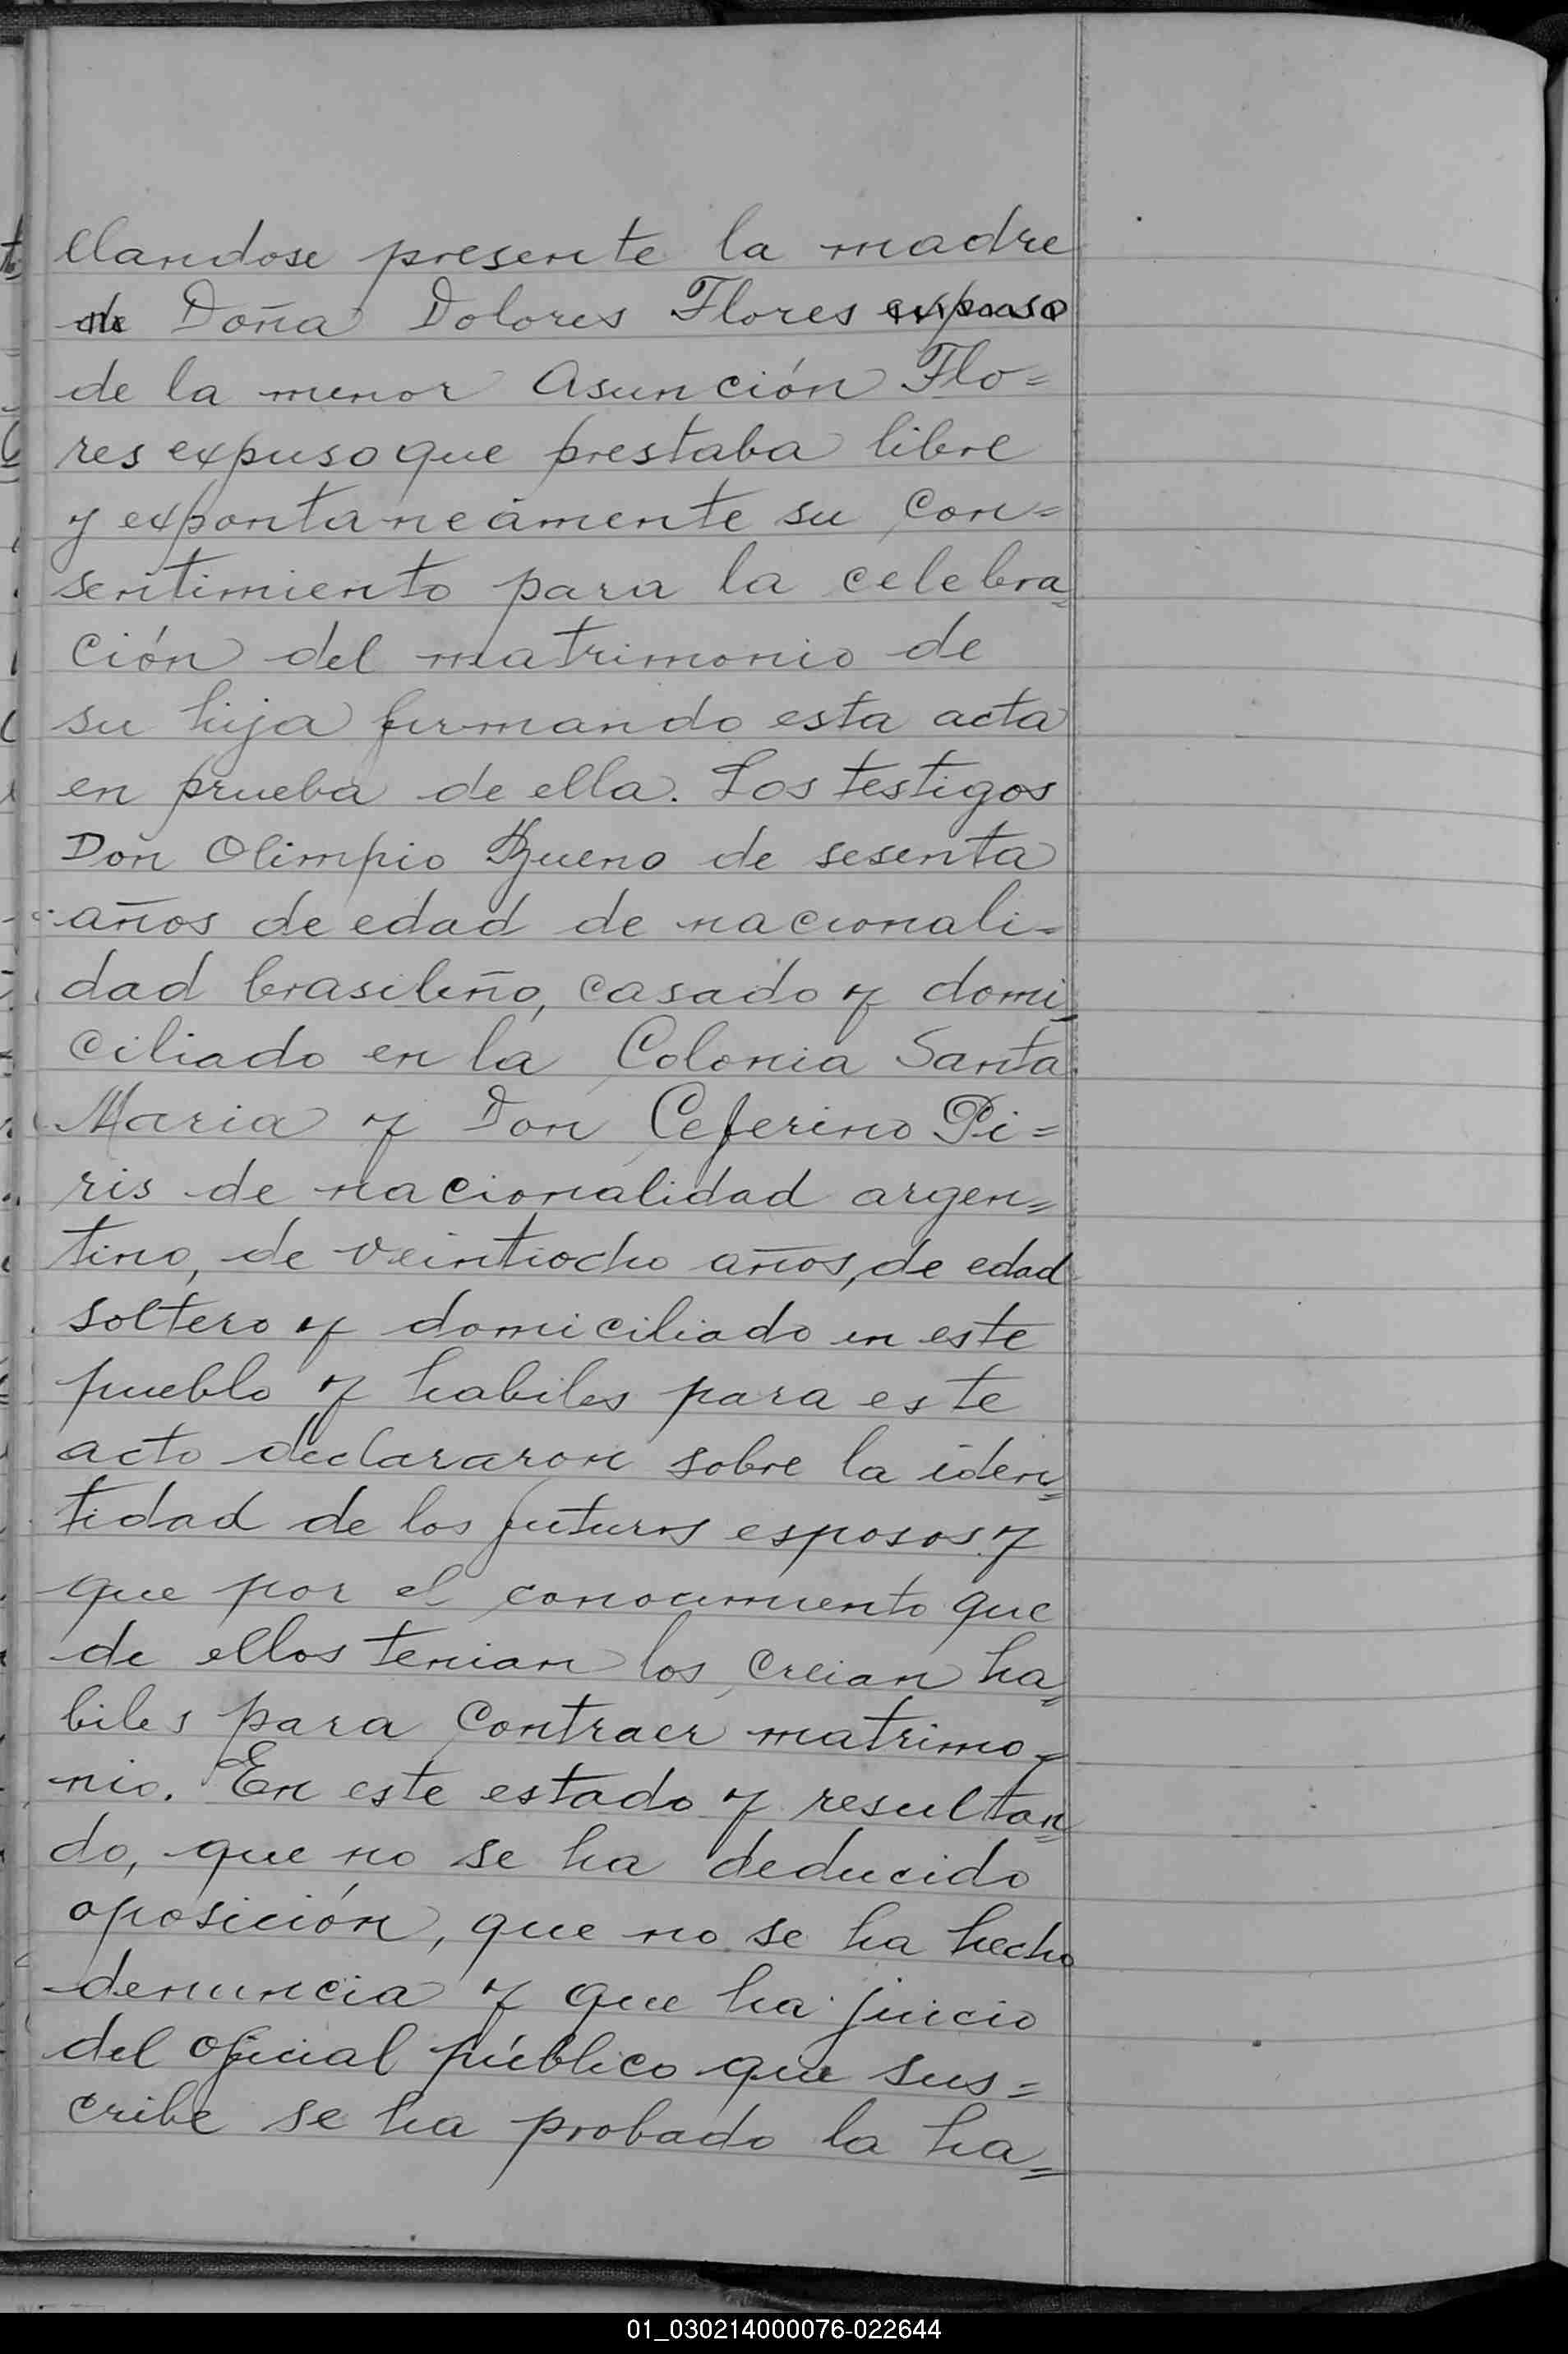 llandose presente la madre
de Doña Dolores Flores expuso
de la menor Asunción Flo=
res expuso que prestaba libre
y expontaneámente su con=
sentimiento para la celebra=
ción del matrimonio de
su hija firmando esta acta
en prueba de ella. Los testigos
Don Olimpio Bueno de sesenta
años de edad de nacionali=
dad brasileño, casado y domi=
ciliado en la Colonia Santa
Maria y Don Ceferino Pi=
ris de nacionalidad argen=
tino, de veintiocho años, de edad
soltero y domiciliado en este
pueblo y habiles para este
acto declararon sobre la iden=
tidad de los futuros esposos y
que por el conocimiento que
de ellos tenian los creian ha=
biles para contraer matrimo=
nio. En este estado y resultan=
do, que no se ha deducido
oposición, que no se ha hecho
denuncia y que ha juicio
del oficial público que sus=
cribe se ha probado la ha=
01_030214000076-022644